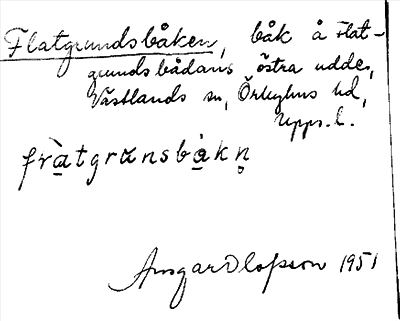 Flatgrundsbåken, båk å Flat-
grundsbådans östra udde,
Västlands sn, Örbyhus hd,
Upps. l.
fràtgransbàkn̥
Ansgar Olofsson 1951